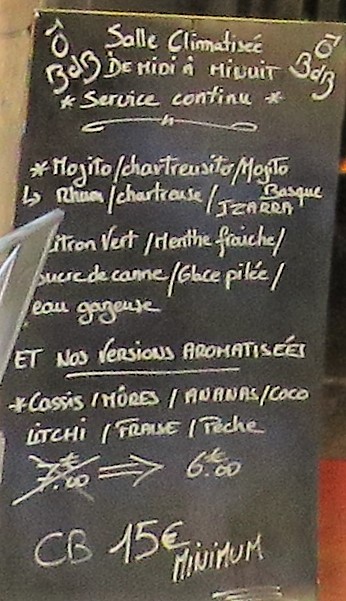 Ô BdB Salle Climatisée Ô BdB
DE MIDI À MINUIT
* Service continu *
* Mojito/chartreusito/Mojito Basque
↳ Rhum/chartreuse/IZARRA
itron Vert/Menthe fraiche/
sucre de canne/Glace pilée/
eau gazeuse
ET NOS VERSIONS AROMATISÉES
* CASSIS/MÛRES/ANANAS/COCO
LITCHI/FRAISE/Pêche
7€00 ⇒ 6€00
CB 15€ MINIMUM